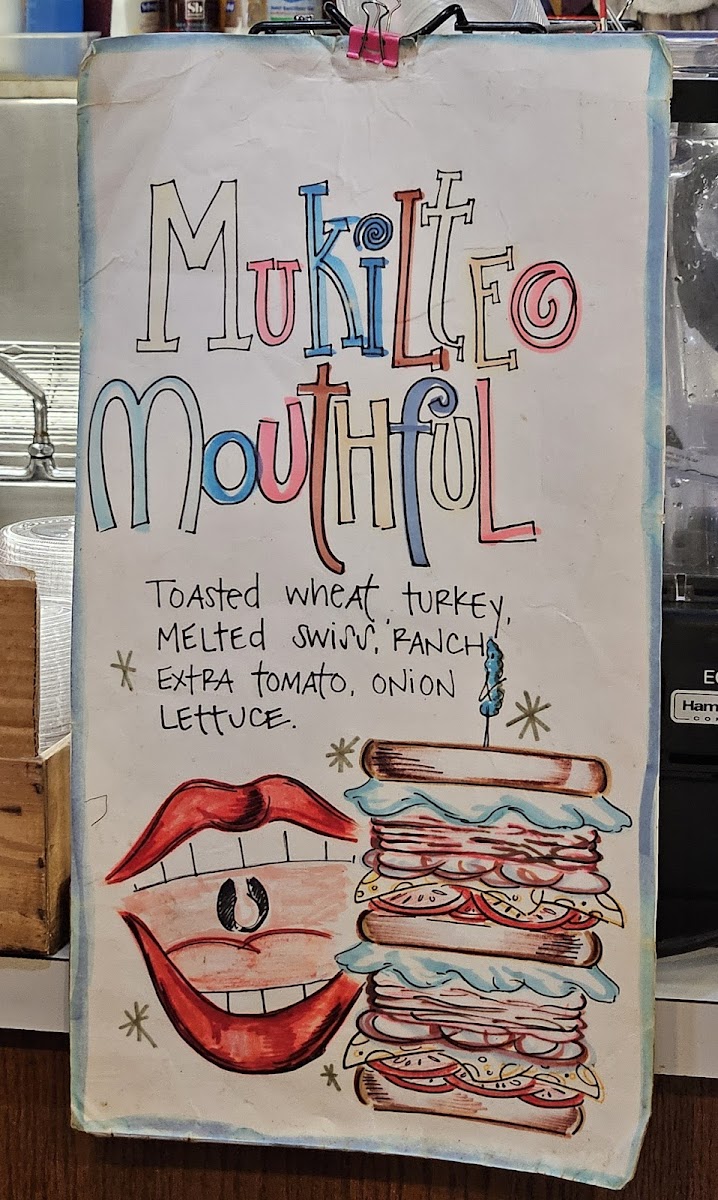 MukiLtEO
MouthfuL
Toasted wheat, turkey,
Melted swiss, Ranch,
Extra tomato, onion
Lettuce.
Ham